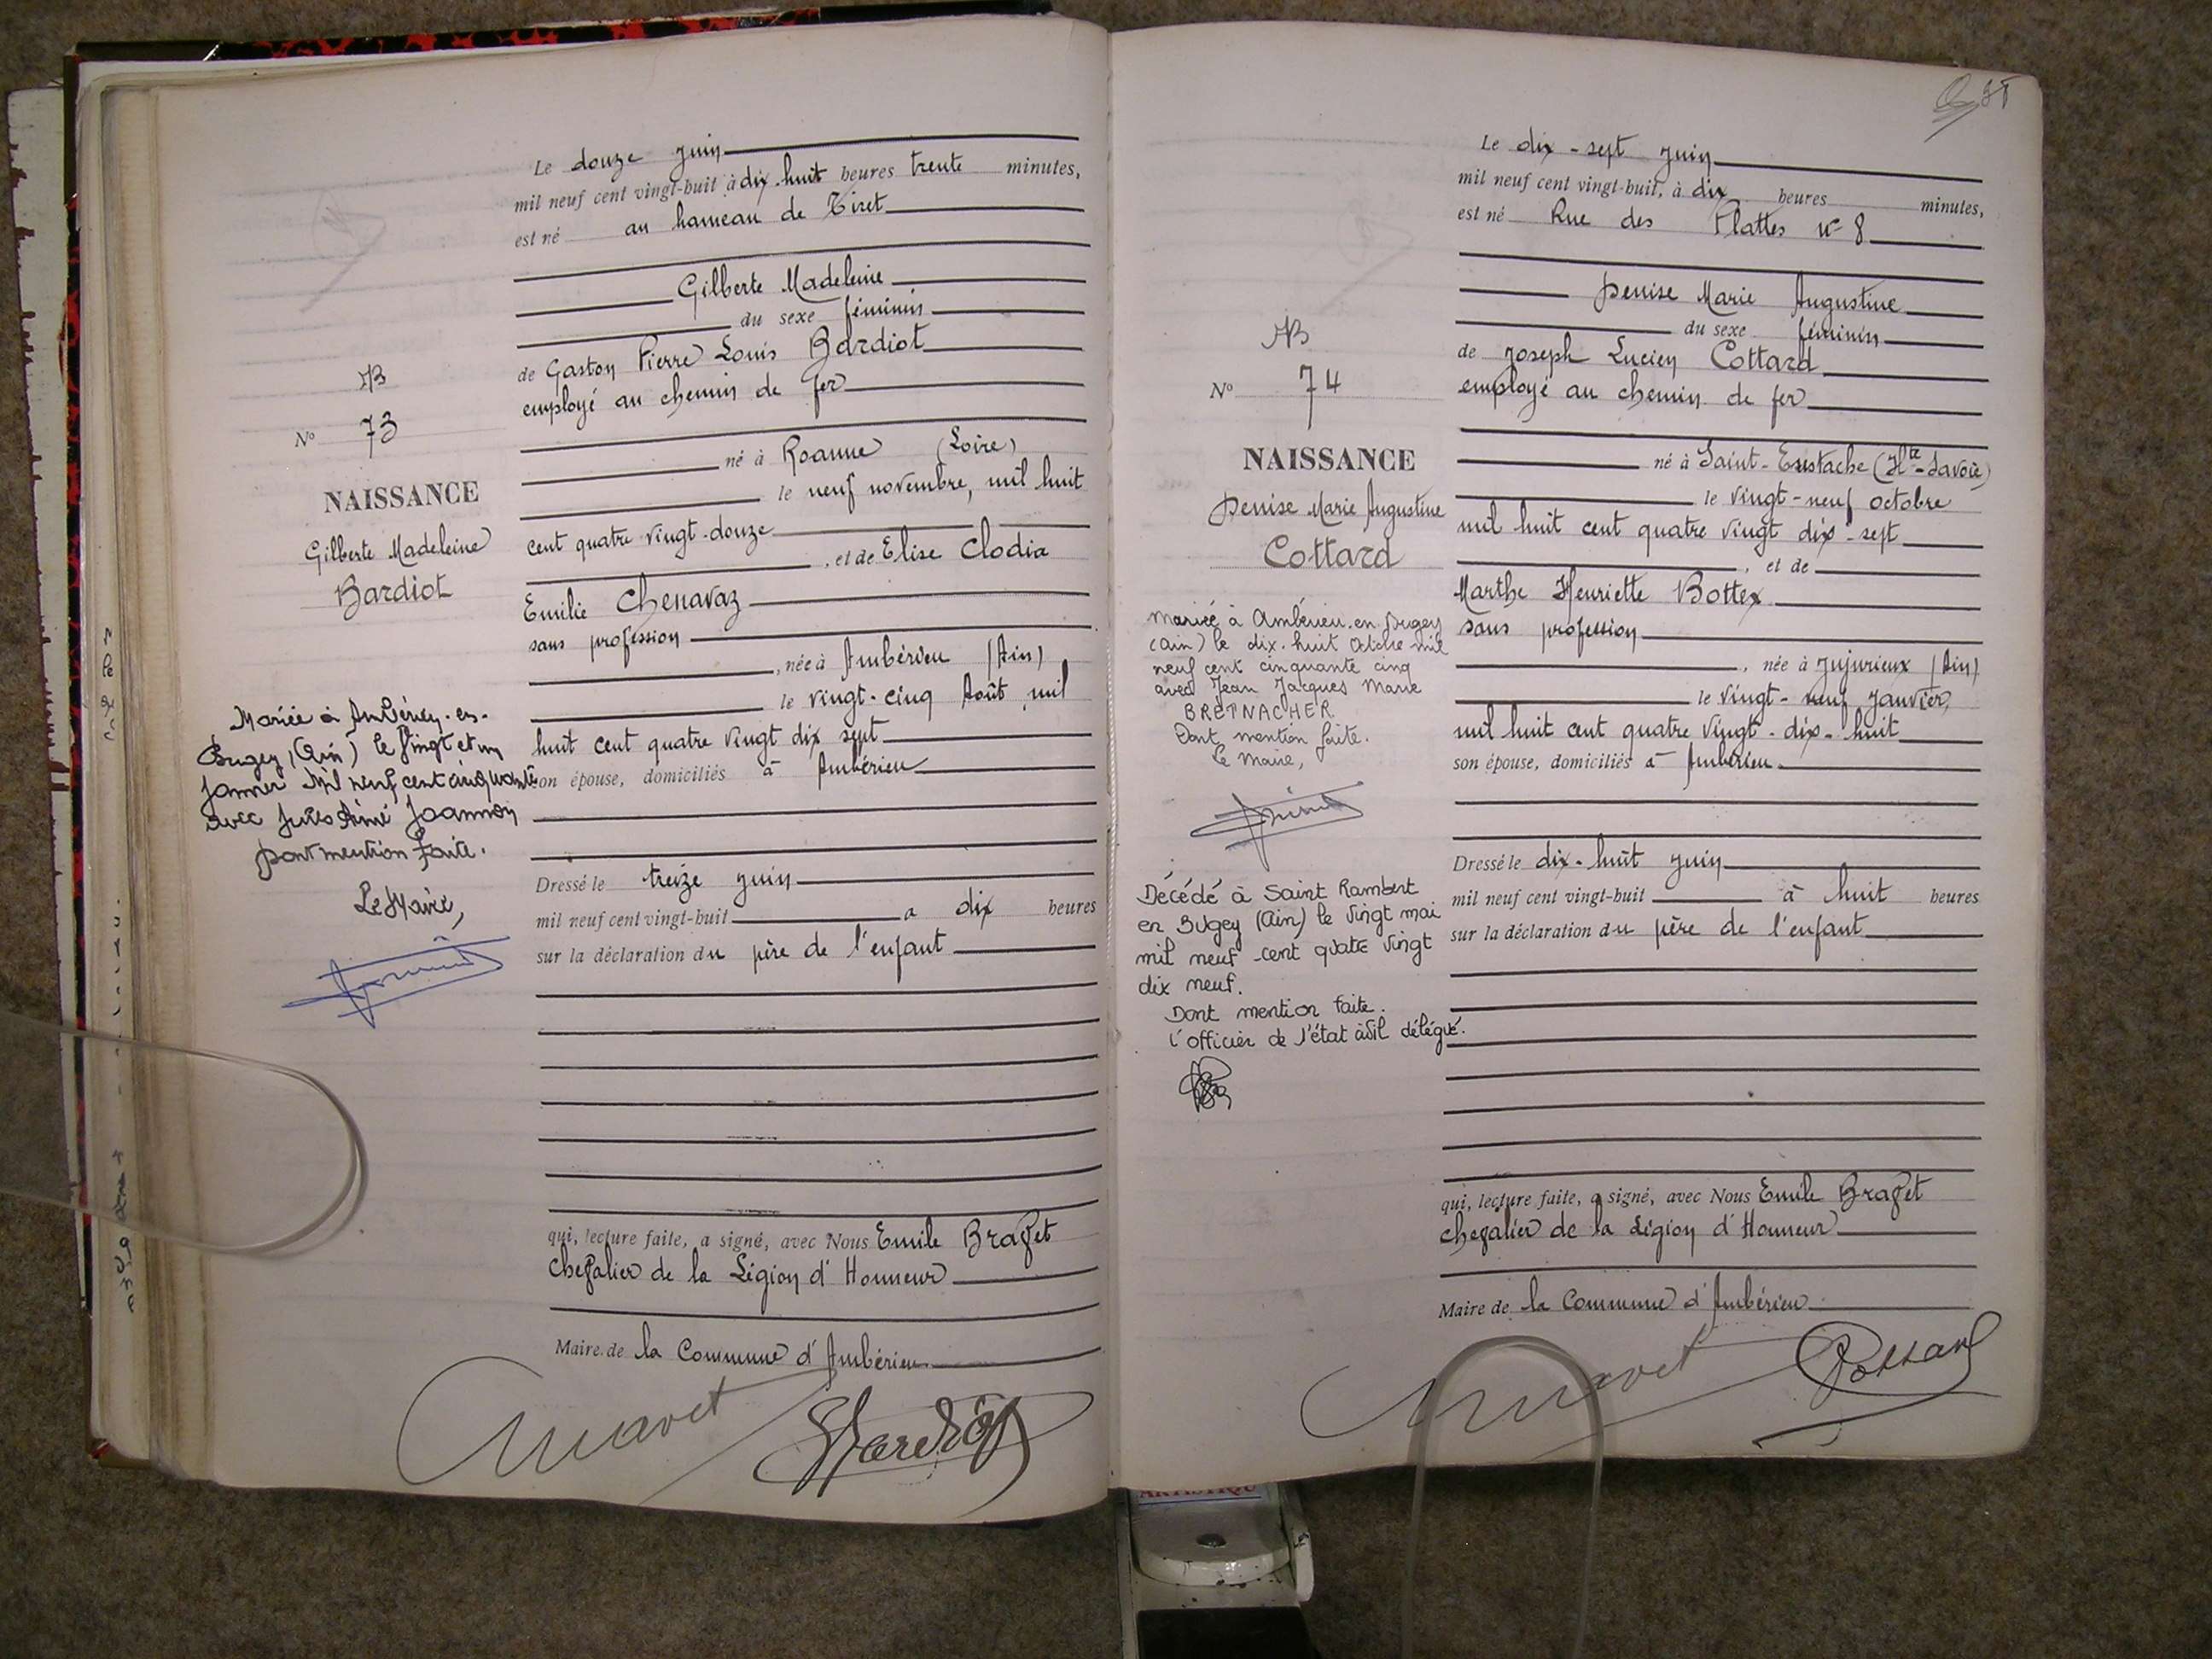 Le douze juin
mil neuf cent vingt-huit à dix-huit heures trente minutes,
est né au hameau de Tiret
Gilberte Madeleine
du sexe féminin
de Gaston Pierre Louis Bardiot
employé au chemin de fer
né à Roanne (Loire)
le neuf novembre, mil huit
cent quatre vingt-douze
, et de Elise Clodia
Emilie Chenavaz
sans profession
, née à Ambérieu (Ain)
le vingt-cinq Août mil
huit cent quatre vingt dix sept
son épouse, domiciliés à Ambérieu
Dressé le treize juin
mil neuf cent vingt-huit à dix heures
sur la déclaration du père de l'enfant
qui, lecture faite, a signé, avec Nous Emile Bravet
chevalier de la Légion d'Honneur
Maire de la Commune d'Ambérieu
Bardiot
N° 73
NAISSANCE
Gilberte Madeleine
Bardiot
Mariée à Ambérieu-en-
Bugey, (Ain) le vingt et un
janvier mil neuf cent cinquante
avec Jules Aimé Joannon
Dont mention faite.
Le Maire,
Le dix-sept juin
mil neuf cent vingt-huit, à dix heures minutes,
est né Rue des Plattes n° 8
Denise Marie Augustine
du sexe féminin
de Joseph Lucien Cottard
employé au chemin de fer
né à Saint-Eustache (Hte-Savoie)
le vingt-neuf octobre
mil huit cent quatre vingt dix-sept
, et de
Marthe Henriette Bottex
sans profession
, née à Jujurieux (Ain)
le vingt-neuf janvier,
mil huit cent quatre vingt-dix-huit
son épouse, domiciliés à Ambérieu
Dressé le dix-huit juin
mil neuf cent vingt-huit à huit heures
sur la déclaration du père de l'enfant
qui, lecture faite, a signé, avec Nous Emile Bravet
chevalier de la Légion d'Honneur
Maire de la Commune d'Ambérieu
N° 74
NAISSANCE
Denise Marie Augustine
Cottard
Mariée à Ambérieu-en-Bugey
(Ain) le dix-huit Octobre mil
neuf cent cinquante cinq
avec Jean Jacques Marie
BRETNACHER
Dont mention faite.
Le Maire,
Décédé à Saint Rambert
en Bugey (Ain) le vingt mai
mil neuf cent quatre vingt
dix neuf.
Dont mention faite.
L'officier de l'état civil délégué.